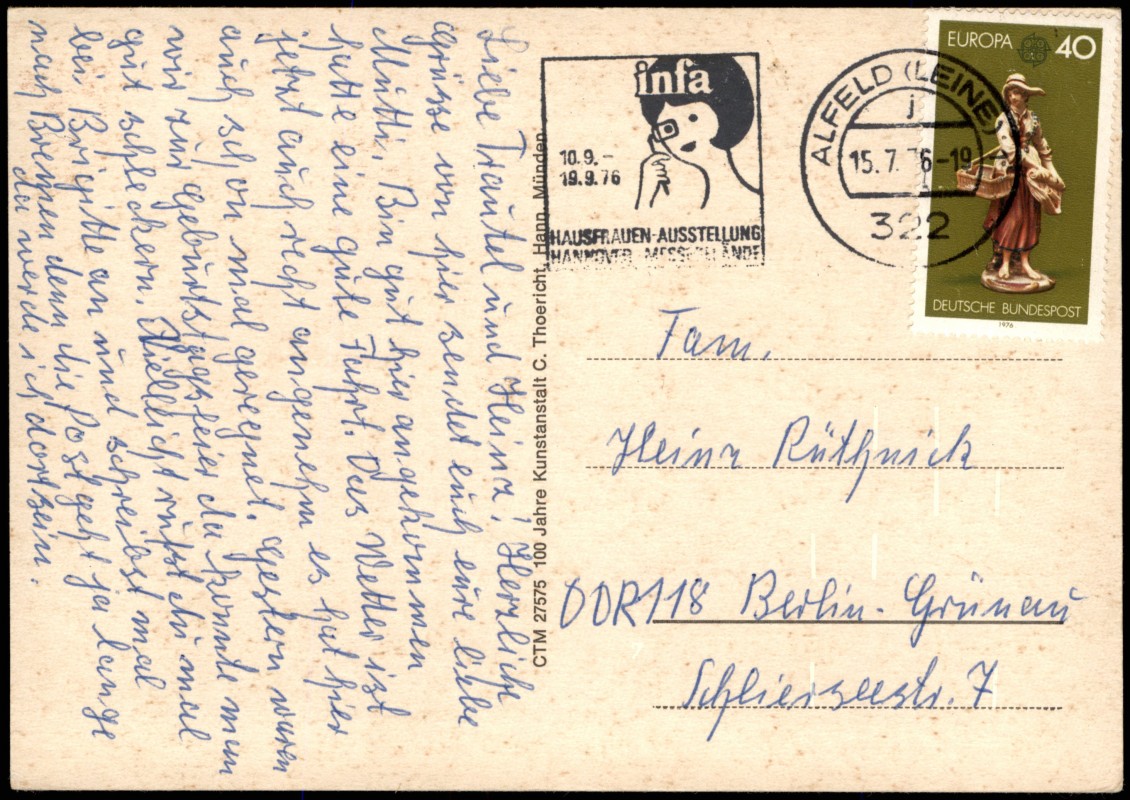 Liebe Trautel und Heinz! Herzlich
Grüsse von hier sendet euch eure liebe
Mutti. Bin gut hier angekommen
hatte eine gute Fahrt. Das Wetter ist
jetzt auch recht angenehm es hat hier
auch schon mal geregnet. Gestern waren
wir zur Geburtstagsfeier da konnte man
gut schleckern. Vielleicht rufst du mal
bei Brigitte an und schreibst mal
nach Bremen denn die Post geht ja lange
da werde ich dort sein.
CTM 27575 100 Jahre Kunstanstalt C. Thoericht, Hann. Münden
infa
10.9.-
19.9.76
HAUSFRAUEN-AUSSTELLUNG
HANNOVER MESSEGELÄNDE
ALFELD (LEINE)
j
15.7.76-19
322
EUROPA 40
DEUTSCHE BUNDESPOST
1976
Fam.
Heinz Rüthnick
DDR 118 Berlin-Grünau
Schlierseestr. 7